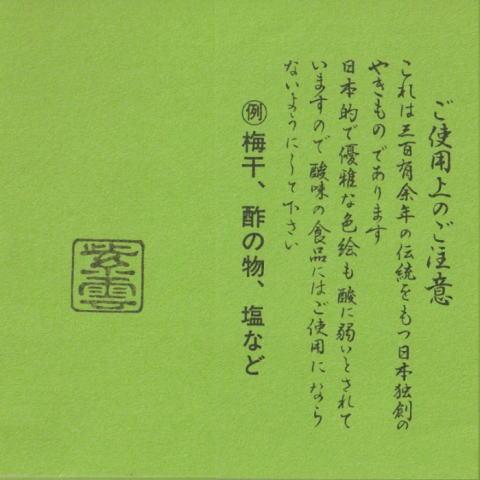 ご使用上のご注意
これは三百有余年の伝統をもつ日本独創の
やきものであります
日本的で優雅な色絵も酸に弱いとされて
いますので酸味の食品にはご使用になら
ないようにして下さい
例 梅干、酢の物、塩など
紫雲